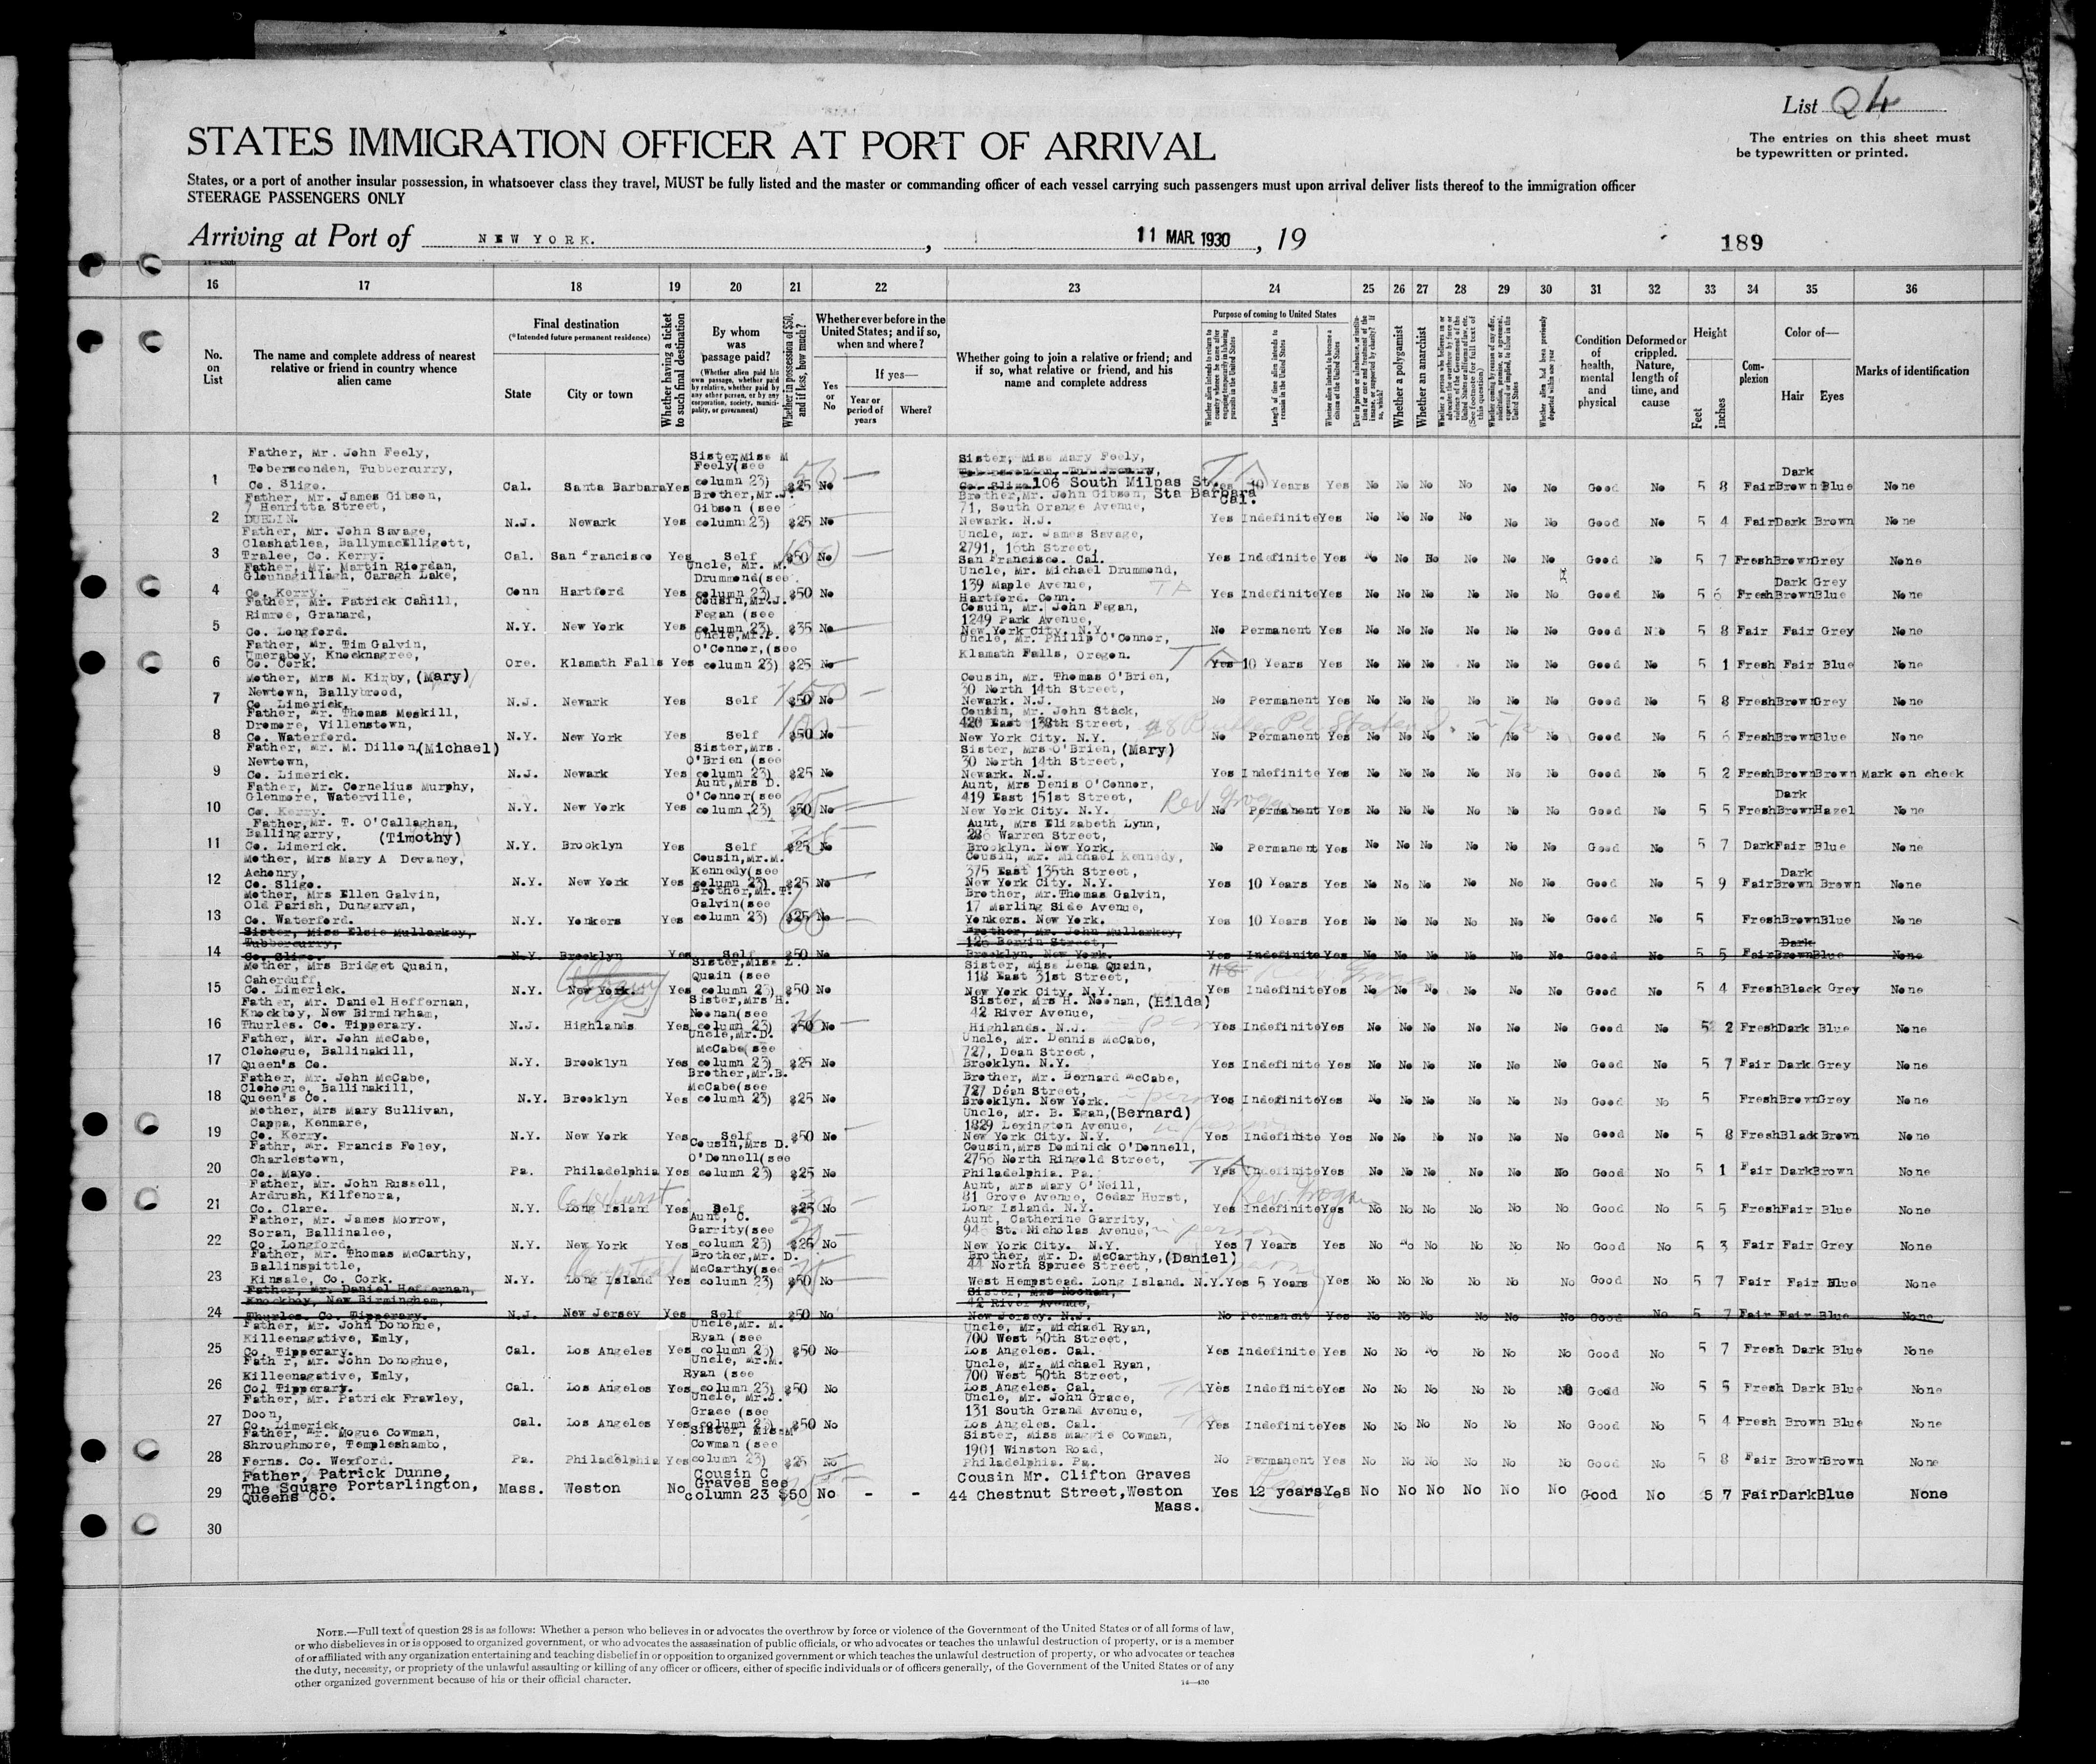 List 24
The entries on this sheet must
be typewritten or printed.
STATES IMMIGRATION OFFICER AT PORT OF ARRIVAL
States, or a port of another insular possession, in whatsoever class they travel, MUST be fully listed and the master or commanding officer of each vessel carrying such passengers must upon arrival deliver lists thereof to the immigration officer
STEERAGE PASSENGERS ONLY
Arriving at Port of NEW YORK. , 11 MAR. 1930 , 19
189
16 17 18 19 20 21 22 23 24 25 26 27 28 29 30 31 32 33 34 35 36
No. on List
The name and complete address of nearest relative or friend in country whence alien came
Final destination
(*Intended future permanent residence)
State
City or town
Whether having a ticket to such final destination
By whom was passage paid?
(Whether alien paid his own passage, whether paid by relative, whether paid by any other person, or by any corporation, society, municipality, or government)
Whether in possession of $50, and if less, how much?
Whether ever before in the United States; and if so, when and where?
Yes or No
If yes—
Year or period of years
Where?
Whether going to join a relative or friend; and if so, what relative or friend, and his name and complete address
Purpose of coming to United States
Whether a polygamist
Whether an anarchist
Condition of health, mental and physical
Deformed or crippled. Nature, length of time, and cause
Height
Feet
Inches
Complexion
Color of—
Hair
Eyes
Marks of identification
1 Father, Mr. John Feely, Toberscanden, Tubbercurry, Co. Sligo. Cal. Santa Barbara Yes Sister, Miss M Feely (see column 23) $25 No Sister, Miss Mary Feely, 106 South Milpas St. Sta Barbara Cal. Yes 10 Years Yes No No No No No No Good No 5 8 Fair Dark Brown Blue None
2 Father, Mr. James Gibson, 7 Henritta Street, DUBLIN. N.J. Newark Yes Brother, Mr. J. Gibson (see column 23) $25 No Brother, Mr. John Gibson, 71, South Orange Avenue, Newark. N.J. Yes Indefinite Yes No No No No No No Good No 5 4 Fair Dark Brown None
3 Father, Mr. John Savage, Clashatlea, BallymacElligott, Tralee, Co. Kerry. Cal. San Francisco Yes Self $50 No Uncle, Mr. James Savage, 2791, 16th Street, San Francisco. Cal. Yes Indefinite Yes No No No No No No Good No 5 7 Fresh Brown Grey None
4 Father, Mr. Martin Riordan, Glounagillagh, Caragh Lake, Co. Kerry. Conn Hartford Yes Uncle, Mr. M. Drummond (see column 23) $50 No Uncle, Mr. Michael Drummond, 139 Maple Avenue, Hartford. Conn. Yes Indefinite Yes No No No No No No Good No 5 6 Fresh Dark Brown Grey Blue None
5 Father, Mr. Patrick Cahill, Rimroe, Granard, Co. Longford. N.Y. New York Yes Cousin, Mr. J. Fegan (see column 23) $35 No Cosuin, Mr. John Fegan, 1249 Park Avenue, New York City. N.Y. No Permanent Yes No No No No No No Good No 5 8 Fair Fair Grey None
6 Father, Mr. Tim Galvin, Umeraboy, Knocknagree, Co. Cork. Ore. Klamath Falls Yes Uncle, Mr. P. O'Connor, (see column 23) $25 No Uncle, Mr. Philip O'Connor, Klamath Falls, Oregon. Yes 10 Years Yes No No No No No No Good No 5 1 Fresh Fair Blue None
7 Mother, Mrs M. Kirby, (Mary) Newtown, Ballybrood, Co Limerick. N.J. Newark Yes Self $50 No Cousin, Mr. Thomas O'Brien, 30 North 14th Street, Newark. N.J. No Permanent Yes No No No No No No Good No 5 8 Fresh Brown Grey None
8 Father, Mr. Thomas Meskill, Dromore, Villenstown, Co. Waterford. N.Y. New York Yes Self $50 No Cousin, Mr. John Stack, 420 East 138th Street, New York City. N.Y. No Permanent Yes No No No No No No Good No 5 6 Fresh Brown Blue None
9 Father, Mr. M. Dillon, (Michael) Newtown, Co. Limerick. N.J. Newark Yes Sister, Mrs. O'Brien (see column 23) $25 No Sister, Mrs O'Brien, (Mary) 30 North 14th Street, Newark. N.J. Yes Indefinite Yes No No No No No No Good No 5 2 Fresh Brown Brown Mark on cheek
10 Father, Mr. Cornelius Murphy, Glenmore, Waterville, Co. Kerry. N.Y. New York Yes Aunt, Mrs D. O'Connor (see column 23) $50 No Aunt, Mrs Denis O'Connor, 419 East 151st Street, New York City. N.Y. Rev Grogan No Permanent Yes No No No No No No Good No 5 5 Fresh Dark Brown Hazel None
11 Father, Mr. T. O'Callaghan, (Timothy) Ballingarry, Co. Limerick. N.Y. Brooklyn Yes Self $25 No Aunt, Mrs Elizabeth Lynn, 286 Warren Street, Brooklyn. New York. No Permanent Yes No No No No No No Good No 5 7 Dark Fair Blue None
12 Mother, Mrs Mary A Devaney, Achonry, Co. Sligo. N.Y. New York Yes Cousin, Mr. M. Kennedy (see column 23) $25 No Cousin, Mr. Michael Kennedy, 375 East 135th Street, New York City. N.Y. Yes 10 Years Yes No No No No No No Good No 5 9 Fair Dark Brown Brown None
13 Mother, Mrs Ellen Galvin, Old Parish, Dungarvan, Co. Waterford. N.Y. Yonkers Yes Brother, Mr. T. Galvin (see column 23) $25 No Brother, Mr. Thomas Galvin, 17 Marling Side Avenue, Yonkers. New York. Yes 10 Years Yes No No No No No No Good No 5 Fresh Brown Blue None
14 Sister, Miss Elsie Mullarkey, Tubbercurry, Co. Sligo. N.Y. Brooklyn Yes Self $50 No Brother, Mr. John Mullarkey, Street, Brooklyn. New York. Yes Indefinite Yes No No No No No No Good No 5 5 Fair Dark Brown Blue None
15 Mother, Mrs Bridget Quain, Caherduff, Co. Limerick. N.Y. New York. Yes Sister, Miss L. Quain (see column 23) $50 No Sister, Miss Lena Quain, 118 East 31st Street, New York City. N.Y. Yes Indefinite Yes No No No No No No Good No 5 4 Fresh Black Grey None
16 Father, Mr. Daniel Heffernan, Knockboy, New Birmingham, Thurles. Co. Tipperary. N.J. Highlands Yes Sister, Mrs H. Noonan (see column 23) $50 No Sister, Mrs H. Noonan, (Hilda) 42 River Avenue, Highlands. N.J. Yes Indefinite Yes No No No No No No Good No 5 2 Fresh Dark Blue None
17 Father, Mr. John McCabe, Clohogue, Ballinakill, Queen's Co. N.Y. Brooklyn Yes Uncle, Mr. D. McCabe (see column 23) $25 No Uncle, Mr. Dennis McCabe, 727, Dean Street, Brooklyn. N.Y. Yes Indefinite Yes No No No No No No Good No 5 7 Fair Dark Grey None
18 Father, Mr. John McCabe, Clohogue, Ballinakill, Queen's Co. N.Y. Brooklyn Yes Brother, Mr. B. McCabe (see column 23) $25 No Brother, Mr. Bernard McCabe, 727 Dean Street, Brooklyn. New York. Yes Indefinite Yes No No No No No No Good No 5 Fresh Brown Grey None
19 Mother, Mrs Mary Sullivan, Cappa, Kenmare, Co. Kerry. N.Y. New York Yes Self $50 No Uncle, Mr. B. Egan, (Bernard) 1829 Lexington Avenue, New York City. N.Y. Yes Indefinite Yes No No No No No No Good No 5 8 Fresh Black Brown None
20 Fathr, Mr. Francis Foley, Charlestown, Co. Mayo. Pa. Philadelphia Yes Cousin, Mrs D. O'Donnell (see column 23) $25 No Cousin, Mrs Dominick O'Donnell, 2756 North Ringold Street, Philadelphia. Pa. Yes Indefinite Yes No No No No No No Good No 5 1 Fair Dark Brown None
21 Father, Mr. John Russell, Ardrush, Kilfenora, Co. Clare. N.Y. Cedarhurst Long Island Yes Self $25 No Aunt, Mrs Mary O'Neill, 81 Grove Avenue, Cedar Hurst, Long Island. N.Y. Rev. Grogan Yes Indefinite Yes No No No No No No Good No 5 5 Fresh Fair Blue None
22 Father, Mr. James Morrow, Soran, Ballinalee, Co. Longford. N.Y. New York Yes Aunt, C. Garrity (see column 23) $25 No Aunt, Catherine Garrity, 94 St. Nicholas Avenue, New York City. N.Y. in person Yes 7 Years Yes No No No No No No Good No 5 3 Fair Fair Grey None
23 Father, Mr. Thomas McCarthy, Ballinspittle, Kinsale, Co. Cork. N.Y. Hempstead Long Island Yes Brother, Mr. D. McCarthy (see column 23) $50 No Brother, Mr. D. McCarthy, (Daniel) 44 North Spruce Street, West Hempstead. Long Island. N.Y. Yes 5 Years Yes No No No No No No Good No 5 7 Fair Fair Blue None
24 Father, Mr. Daniel Heffernan, Knockboy, New Birmingham, Thurles. Co. Tipperary. N.J. New Jersey Yes Self $50 No Sister, Mrs Noonan, 42 River Avenue, New Jersey. N.J. No Permanent Yes No No No No No No Good No 5 7 Fair Fair Blue None
25 Father, Mr. John Donohue, Killeenagative, Emly, Co. Tipperary. Cal. Los Angeles Yes Uncle, Mr. M. Ryan (see column 23) $50 No Uncle, Mr. Michael Ryan, 700 West 50th Street, Los Angeles. Cal. Yes Indefinite Yes No No No No No No Good No 5 7 Fresh Dark Blue None
26 Fath r, Mr. John Donoghue, Killeenagative, Emly, Col Tipperary. Cal. Los Angeles Yes Uncle, Mr. M. Ryan (see column 23) $50 No Uncle, Mr. Michael Ryan, 700 West 50th Street, Los Angeles. Cal. Yes Indefinite Yes No No No No No No Good No 5 5 Fresh Dark Blue None
27 Father, Mr. Patrick Frawley, Doon, Co. Limerick. Cal. Los Angeles Yes Uncle, Mr. J. Grace (see column 23) $50 No Uncle, Mr. John Grace, 131 South Grand Avenue, Los Angeles. Cal. Yes Indefinite Yes No No No No No No Good No 5 4 Fresh Brown Blue None
28 Father, Mr. Mogue Cowman, Shroughmore, Templeshambo, Ferns. Co. Wexford. Pa. Philadelphia Yes Sister, Miss M Cowman (see column 23) $25 No Sister, Miss Maggie Cowman, 1901 Winston Road, Philadelphia. Pa. No Permanent Yes No No No No No No Good No 5 8 Fair Brown Brown None
29 Father, Patrick Dunne, The Square Portarlington, Queens Co. Mass. Weston No Cousin C Graves see column 23 $50 No - - Cousin Mr. Clifton Graves 44 Chestnut Street, Weston Mass. Yes 12 years Yes No No No No No No Good No 5 7 Fair Dark Blue None
30
NOTE.—Full text of question 28 is as follows: Whether a person who believes in or advocates the overthrow by force or violence of the Government of the United States or of all forms of law,
or who disbelieves in or is opposed to organized government, or who advocates the assassination of public officials, or who advocates or teaches the unlawful destruction of property, or is a member
of or affiliated with any organization entertaining and teaching disbelief in or opposition to organized government or which teaches the unlawful destruction of property, or who advocates or teaches
the duty, necessity, or propriety of the unlawful assaulting or killing of any officer or officers, either of specific individuals or of officers generally, of the Government of the United States or of any
other organized government because of his or their official character.
14—430